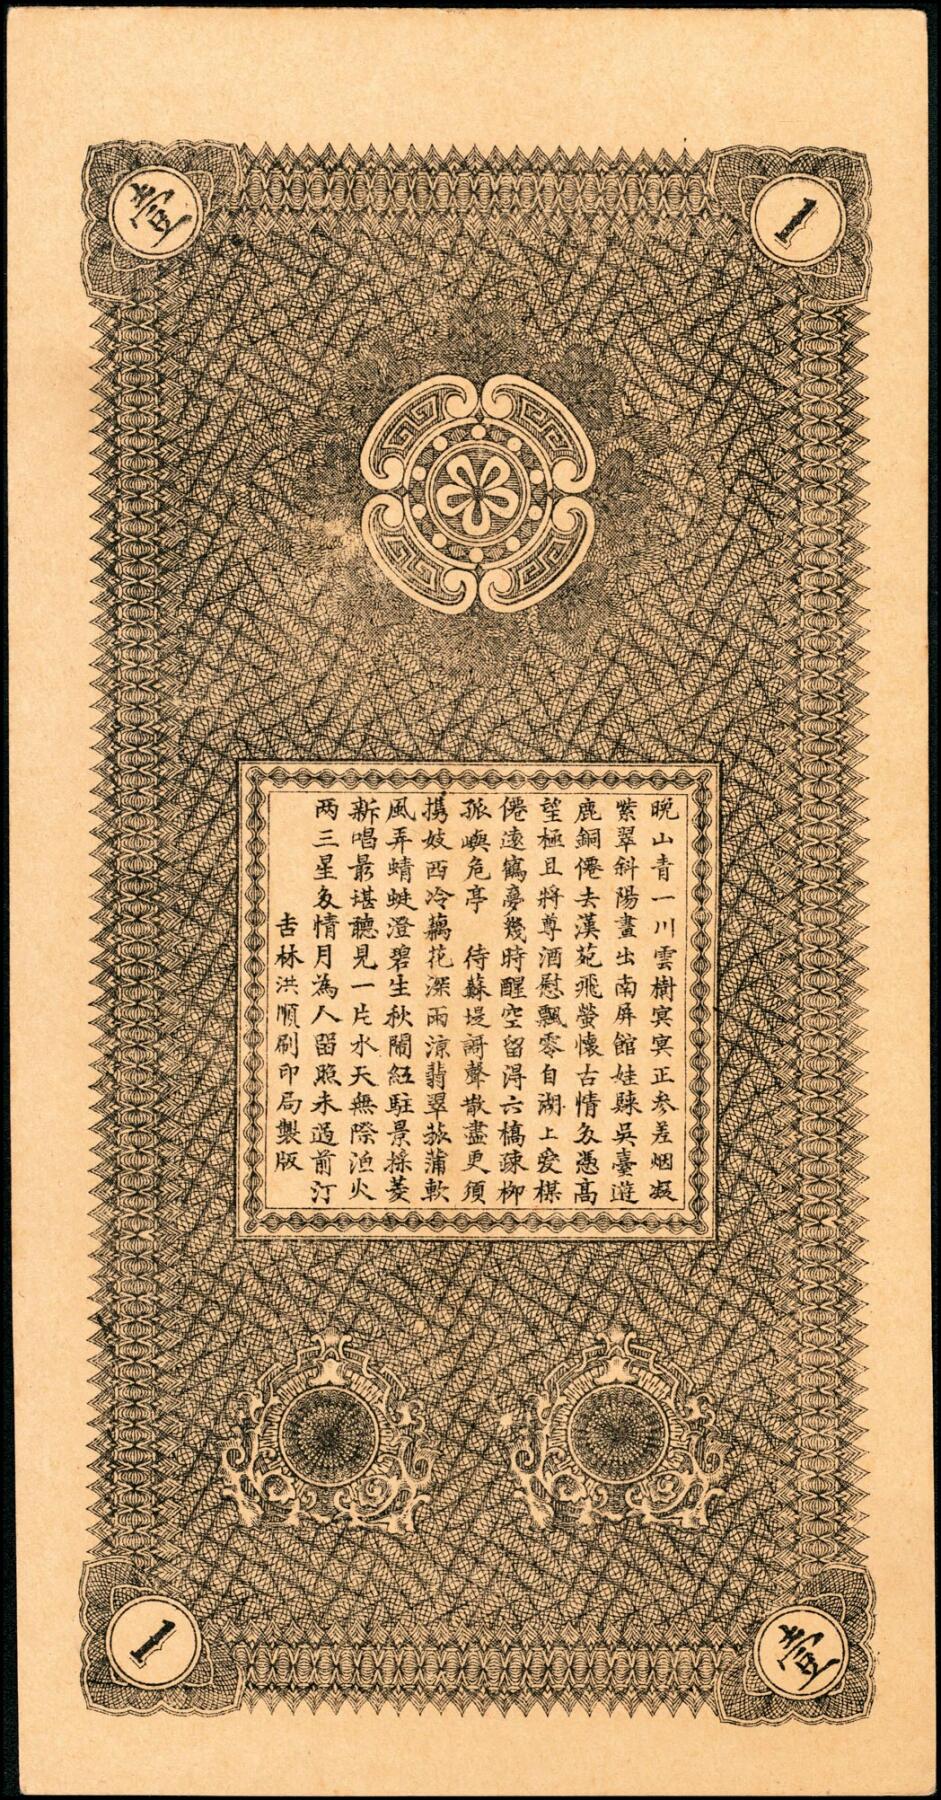 壹
1
晚山青一川雲樹冥冥正参差烟凝
紫翠斜陽畫出南屏館娃歸吳臺遊
鹿銅僊去漢苑飛螢懷古情多憑高
望極且將尊酒慰飄零自湖上愛楳
僊遠鶴夢幾時醒空留淂六橋疎栁
孤嶼危亭 待蘇堤謌聲散盡更須
攜妓西冷藕花深雨涼翡翠菰蒲軟
風弄蜻蜓澄碧生秋閙紅駐景採菱
新唱最堪聽見一片水天無際渔火
两三星多情月為人畱照未過前汀
吉林洪順刷印局製版
1
壹